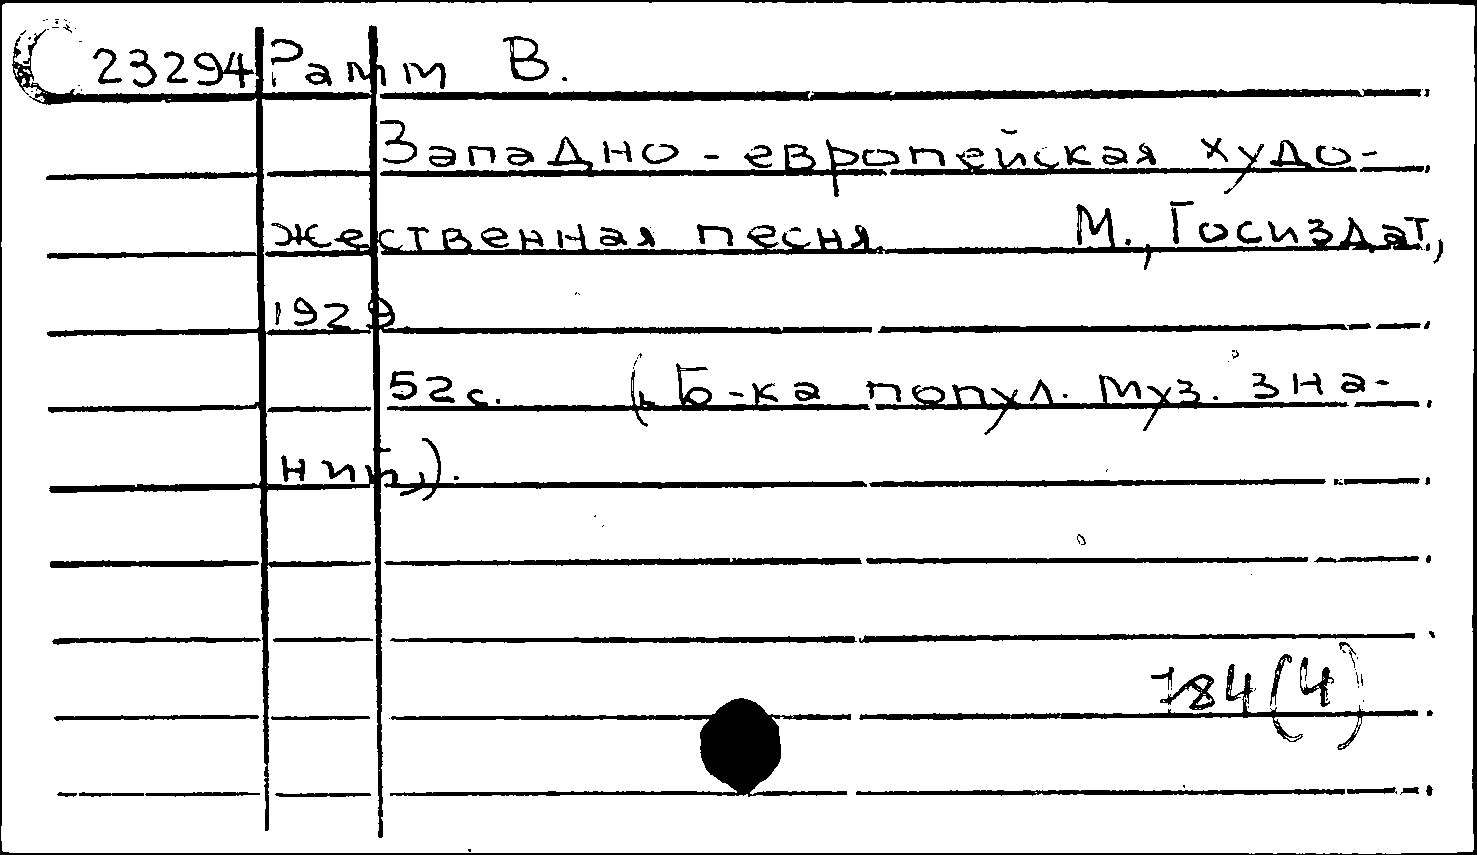 23294 Рамм В.
Западно-европейская худо-
жественная песня. М., Госиздат.,
1929
52с. („Б-ка попул. муз. зна-
ний„).
784(4)